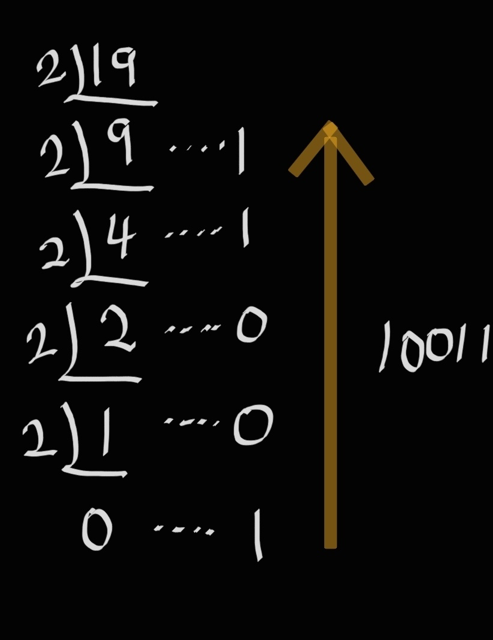 2)19
2)9 ····1
2)4 ····1
2)2 ····0
2)1 ····0
0 ····1
10011